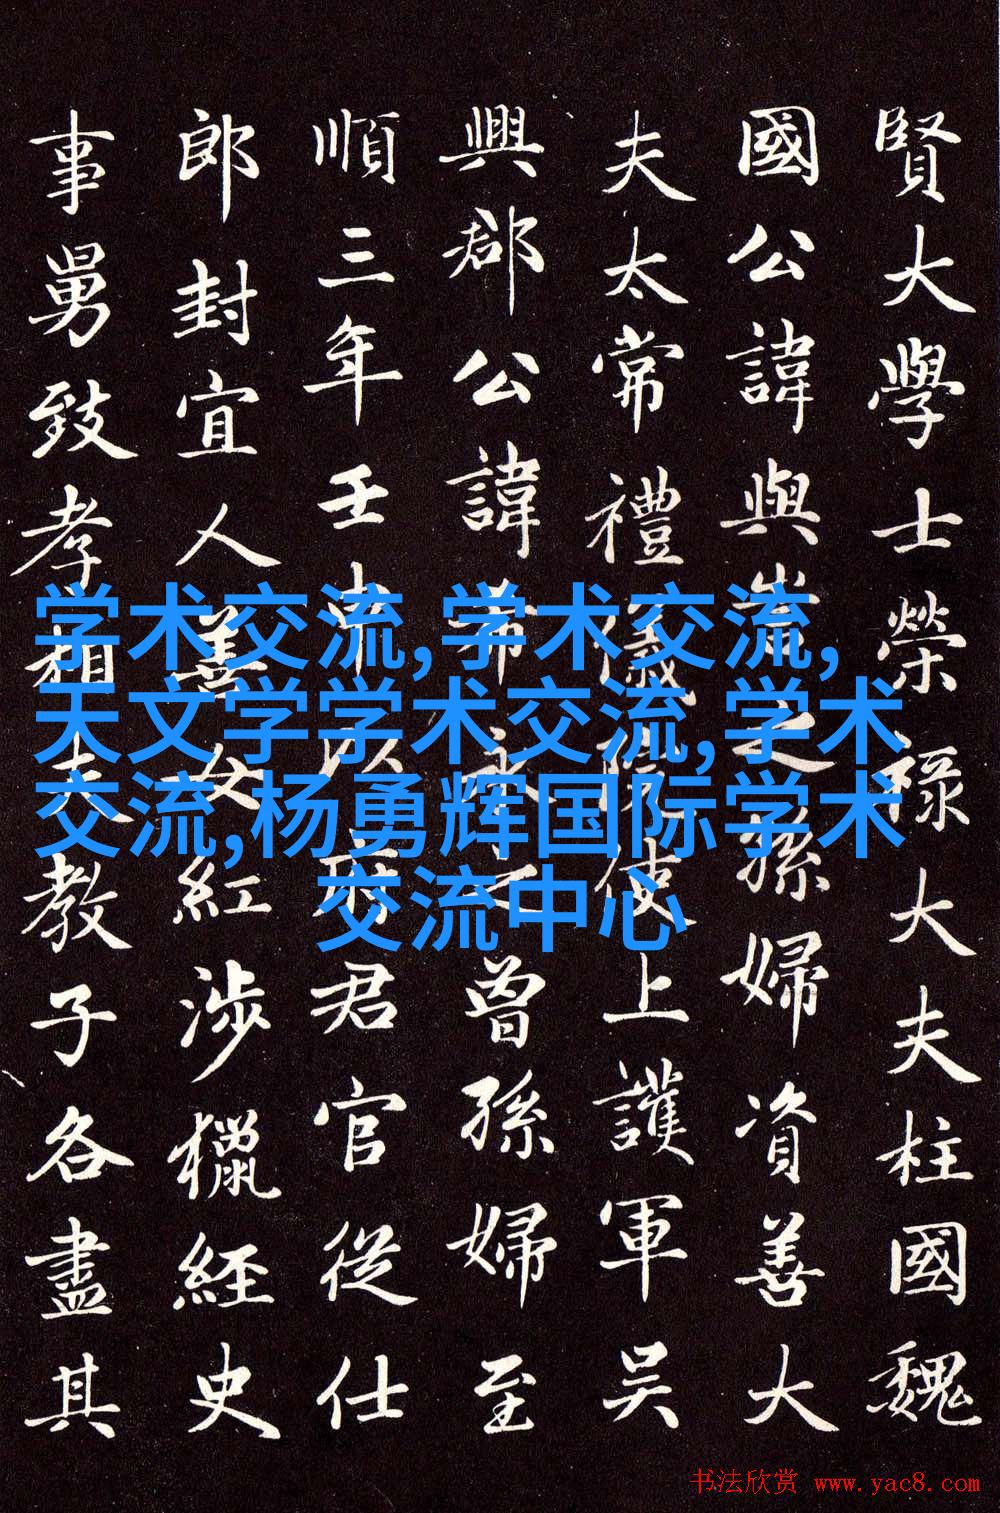 賢大學士榮祿大夫柱國魏
國公諱與崇之孫婦資善大
夫太常禮儀院使上護軍吴
興郡公諱希永之曾孫婦至
順三年壬申以府君官從仕
郎封宜人善女紅涉獵經史
事舅致孝相夫教子各盡其
学术交流,学术交流,
天文学学术交流,学术
交流,杨勇辉国际学术
交流中心
书法欣赏 www.yac8.com